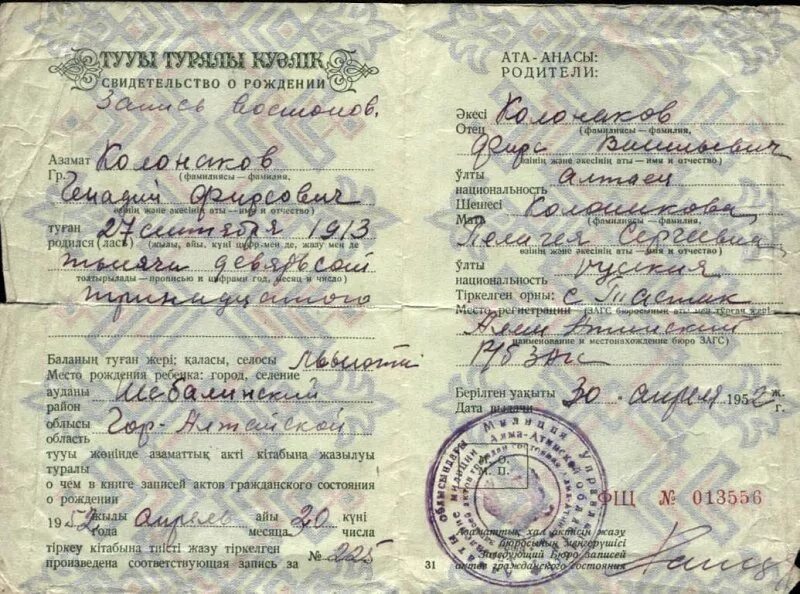 ТУУЫ ТУРАЛЫ КУӘЛІК
СВИДЕТЕЛЬСТВО О РОЖДЕНИИ
Запись востонов.
Азамат Колонаков
Гр. (фамилиясы — фамилия,
Генадий Фирсович
өзінің және әкесінің аты — имя и отчество)
туған 27 сентября 1913
родился (лась) (жылы, айы, күні цифрмен де, жазумен де
тысяча девятьсот
толтырылады — прописью и цифрами год, месяц и число)
тринадцатого
Баланың туған жері; қаласы, селосы
Место рождения ребенка: город, селение
ауданы Шебалинский
район
облысы Гор-Алтайской
область
тууы жөнінде азаматтық акті кітабына жазылуы
туралы
о чем в книге записей актов гражданского состояния
о рождении
1952 жылы апрель айы 20 күні
года месяца числа
тіркеу кітабына тиісті жазу тіркелген
произведена соответствующая запись за № 225
АТА-АНАСЫ:
РОДИТЕЛИ:
Әкесі Колонаков
Отец (фамилиясы — фамилия,
Фирс Васильевич
өзінің және әкесінің аты — имя и отчество)
ұлты алтаец
национальность
Шешесі Колонакова
Мать (фамилиясы — фамилия,
Пелагея Сергеевна
өзінің және әкесінің аты — имя и отчество)
ұлты русския
национальность
Тіркелген орны: с Тастак
Место регистрации (ЗАГС бюросының аты мен тұрған жері—
Алма Атинский
наименование и местонахождение бюро ЗАГС)
Р/б ЗАГС
Берілген уақыты 30 апреля 1952 ж.
Дата выдачи г.
М. О.
М. П.
ФЩ № 013556
Азаматтық хал актісін жазу
бюросының меңгерушісі
Заведующий Бюро записей
31 актов гражданского состояния